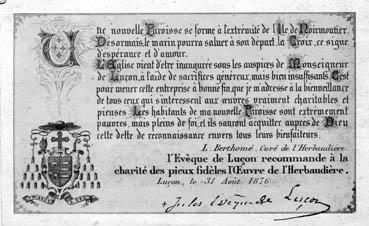 Une nouvelle Paroisse se forme à l'extrémité de l'Ile de Noirmoutier.
Désormais, le marin pourra saluer à son départ la Croix, ce signe
d'espérance et d'amour.
L'Église vient d'être inaugurée sous les auspices de Monseigneur
de Luçon, à l'aide de sacrifices généreux, mais bien insuffisants. C'est
pour mener cette entreprise à bonne fin, que je m'adresse à la bienveillance
de tous ceux qui s'intéressent aux œuvres vraiment charitables et
pieuses. Les habitants de ma nouvelle Paroisse sont extrêmement
pauvres, mais pleins de foi, et ils sauront acquitter auprès de Dieu
cette dette de reconnaissance envers tous leurs bienfaiteurs.
L. Berthomé, Curé de l'Herbaudière.
l'Evêque de Luçon recommande à la
charité des pieux fidèles l'Œuvre de l'Herbaudière.
Luçon, le 31 Août 1876
+ Jules Evêque de Luçon